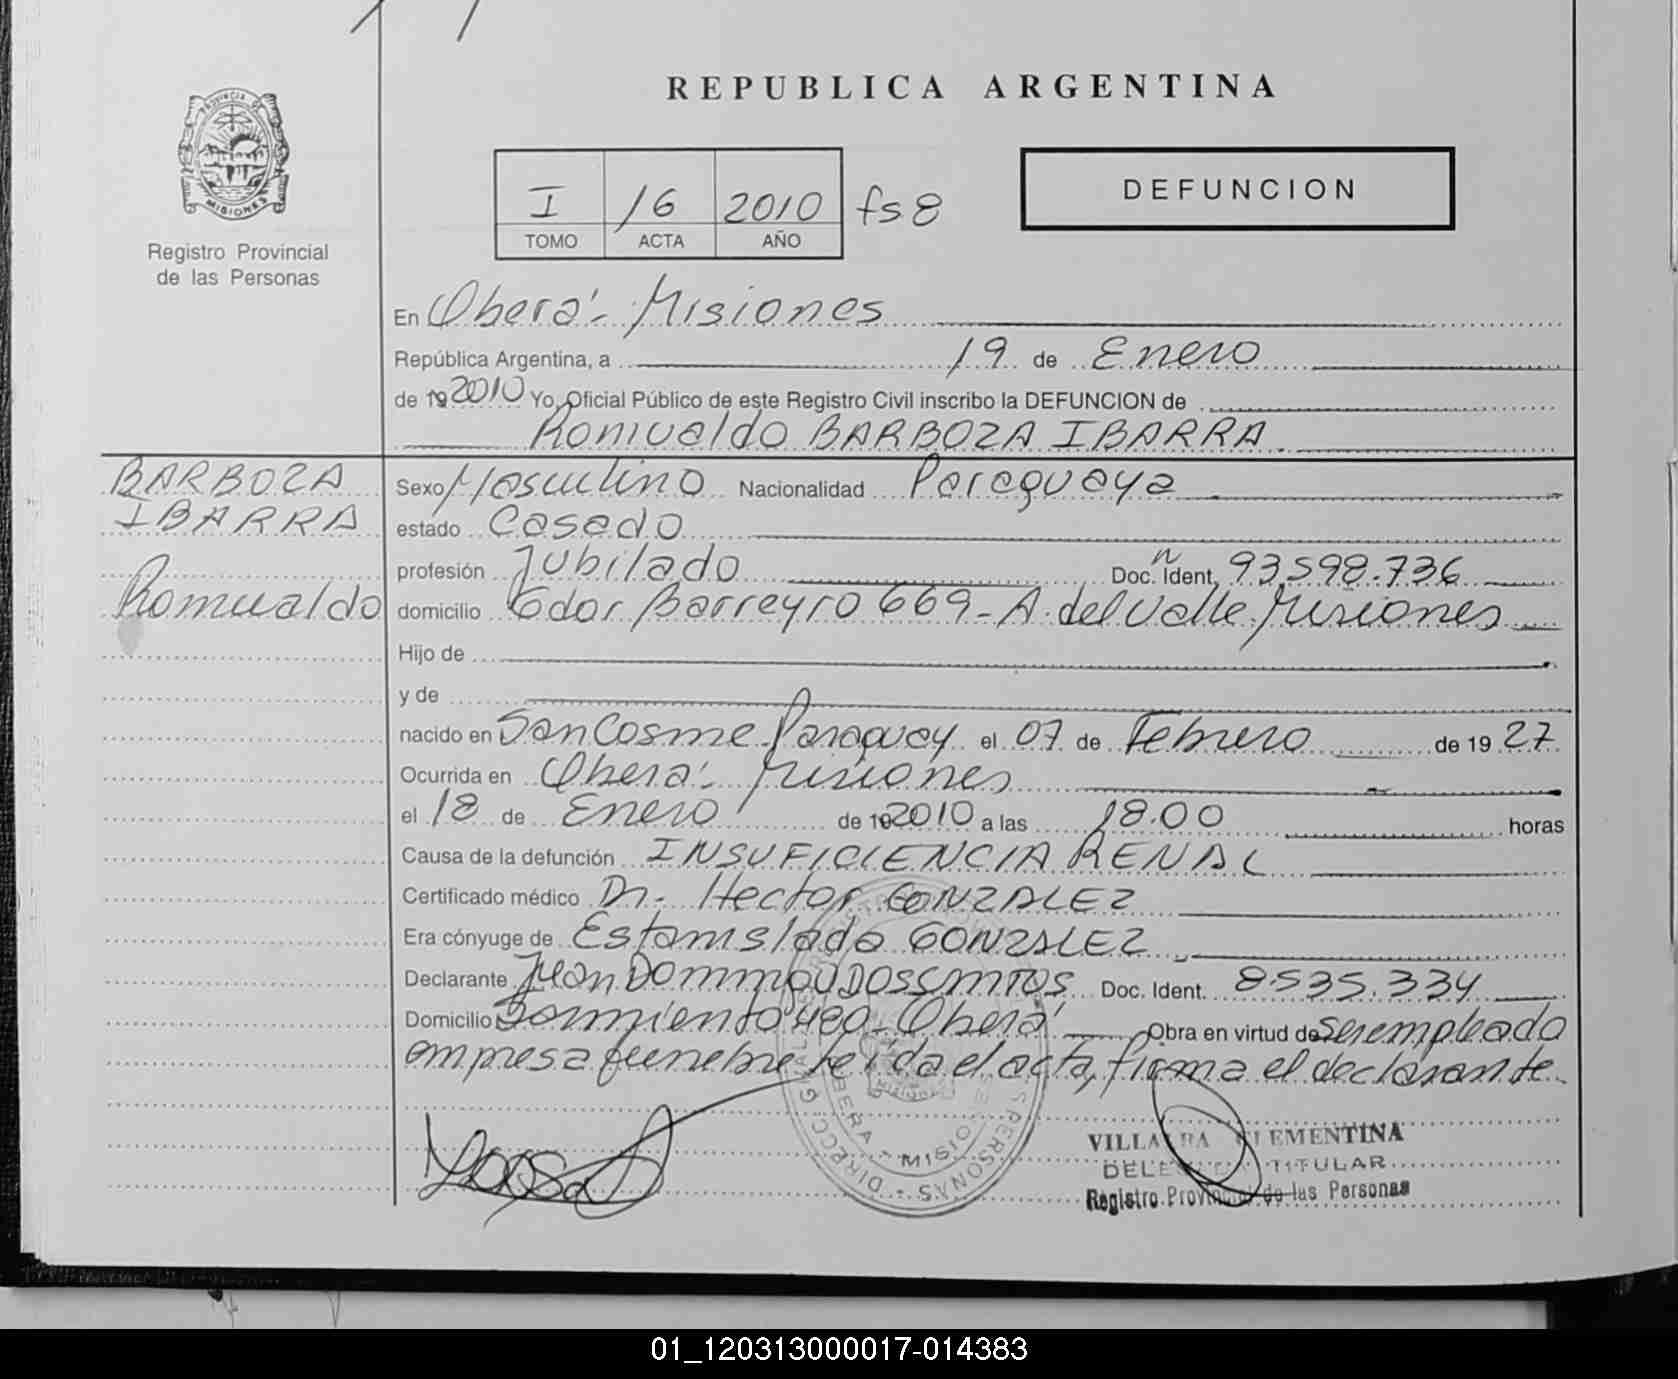 REPUBLICA ARGENTINA
PROVINCIA DE
MISIONES
Registro Provincial
de las Personas
I 16 2010 fs 8
TOMO ACTA AÑO
DEFUNCION
En Oberá - Misiones
República Argentina, a 19 de Enero
de 19 2010 Yo, Oficial Público de este Registro Civil inscribo la DEFUNCION de
Romualdo BARBOZA IBARRA
BARBOZA
IBARRA
Romualdo
Sexo Masculino Nacionalidad Paraguaya
estado Casado
profesión Jubilado Doc. Ident. n 93.598.736
domicilio Gdor Barreyro 669 - A. del Valle Misiones
Hijo de
y de
nacido en San Cosme Paraguay el 07 de Febrero de 19 27
Ocurrida en Oberá - Misiones
el 18 de Enero de 19 2010 a las 18.00 horas
Causa de la defunción INSUFICIENCIA RENAL
Certificado médico Dr. Hector GONZALEZ
Era cónyuge de Estanislada GONZALEZ
Declarante Juan Domingo DOSSANTOS Doc. Ident. 8535.334
Domicilio Sarmiento - Oberá Obra en virtud de ser empleado
empresa funebre leida el acta, firma el declarante
VILLALBA CLEMENTINA
DELEGADA TITULAR
Registro Provincial de las Personas
01_120313000017-014383